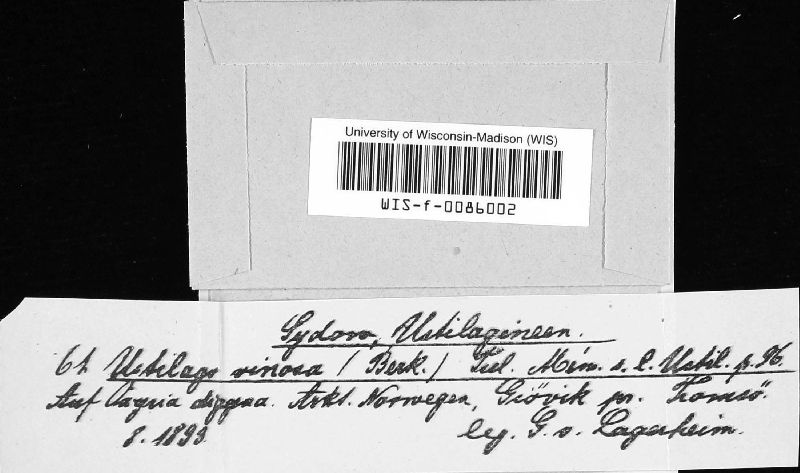 University of Wisconsin-Madison (WIS)
WIS-f-0086002
Sydow, Ustilagineen.
Ustilago vinosa (Berk.) Tul. Mém. s. l. Ustil. p. 96.
Auf Oxyria digyna. Arkt. Norwegen, Giövik pr. Tromsö.
8. 1893. leg. G. v. Lagerheim.